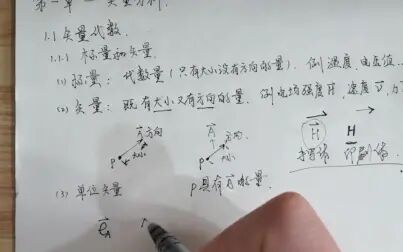 第一章 矢量分析.
1.1 矢量代数.
1.1.1 标量和矢量.
(1) 标量: 代数量(只有大小没有方向的量). 例 温度、电压值
(2) 矢量: 既有大小又有方向的量. 例 电场强度 H⃗, 速度 v⃗, 力
A⃗ 方向
大小
P
A⃗ 方向.
大小
P
H⃗ H
手写体 印刷体
P具有A⃗的量.
(3) 单位矢量
e⃗A